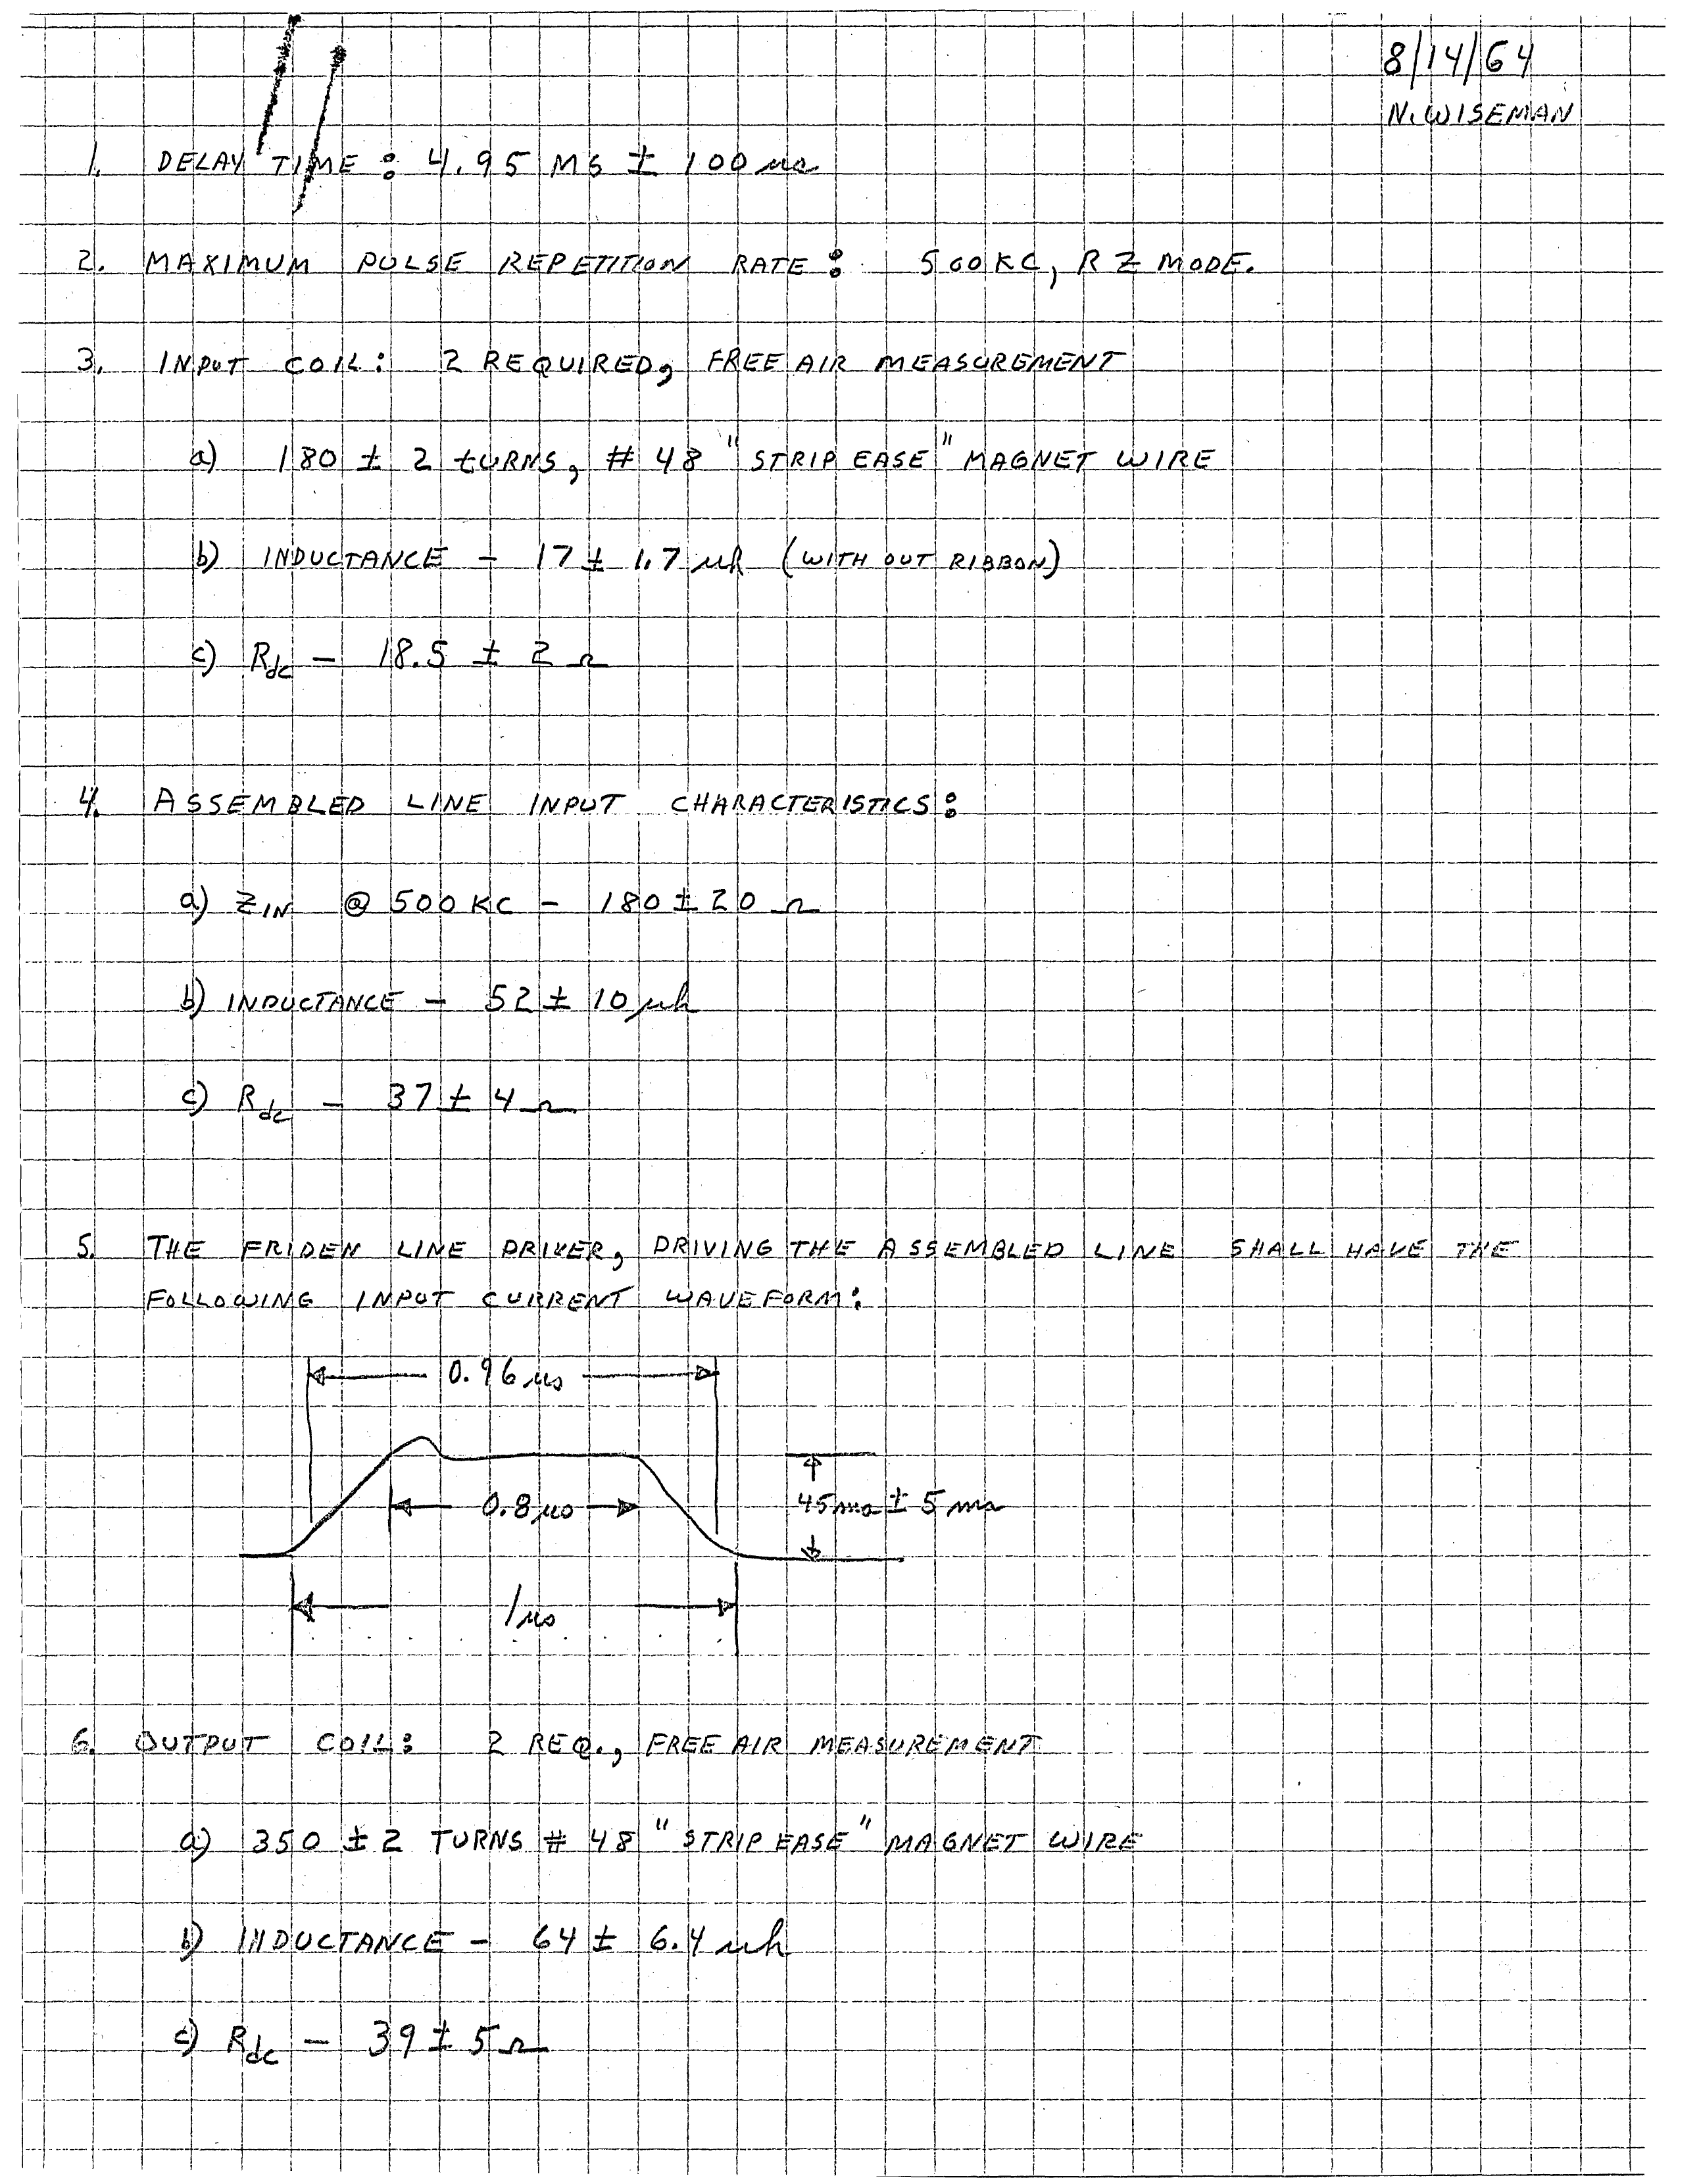 8/14/64
N. WISEMAN
1. DELAY TIME: 4.95 MS ± 100 μs
2. MAXIMUM PULSE REPETITION RATE: 500 KC, RZ MODE.
3. INPUT COIL: 2 REQUIRED, FREE AIR MEASUREMENT
a) 180 ± 2 TURNS, # 48 "STRIP EASE" MAGNET WIRE
b) INDUCTANCE - 17 ± 1.7 μh (WITH OUT RIBBON)
c) Rdc - 18.5 ± 2 Ω
4. ASSEMBLED LINE INPUT CHARACTERISTICS:
a) ZIN @ 500 KC - 180 ± 20 Ω
b) INDUCTANCE - 52 ± 10 μh
c) Rdc - 37 ± 4 Ω
5. THE FRIDEN LINE DRIVER, DRIVING THE ASSEMBLED LINE SHALL HAVE THE
FOLLOWING INPUT CURRENT WAVEFORM:
0.96 μs
0.8 μs
45 ma ± 5 ma
1 μs
6. OUTPUT COIL: 2 REQ., FREE AIR MEASUREMENT
a) 350 ± 2 TURNS # 48 "STRIP EASE" MAGNET WIRE
b) INDUCTANCE - 64 ± 6.4 μh
c) Rdc - 39 ± 5 Ω